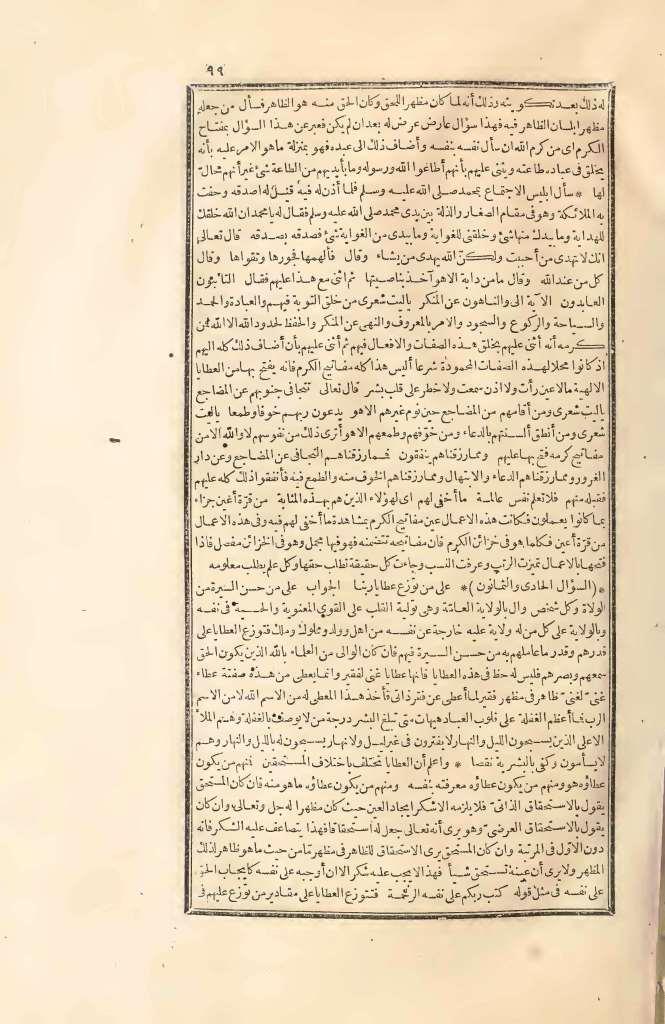 ٩٩
له ذلك بعد تكوينه وذلك أنه لما كان مظهرا للحق وكان الحق منه هو الظاهر فسأل من جعله
مظهرا بلسان الظاهر فيه فهذا سؤال عارض عرض له بعد ان لم يكن فعبر عن هذا السؤال بمفتاح
الكرم اى من كرم الله ان سأل نفسه بنفسه وأضاف ذلك الى عبده فهو بمنزلة ما هو الامر عليه بأنه
يخلق فى عباده طاعته ويثنى عليهم بأنهم أطاعوا الله ورسوله وما بأيديهم من الطاعة شئ غير أنهم محال
لها * سأل ابليس الاجتماع بمحمد صلى الله عليه وسلم فلما أذن له فيه قيل له اصدقه وحفت
به الملائكة وهو فى مقام الصغار والذلة بين يدى محمد صلى الله عليه وسلم فقال له يا محمد ان الله خلقك
للهداية وما بيدك منها شئ وخلقنى للغواية وما بيدى من الغواية شئ فصدقه بصدقه قال تعالى
انك لا تهدى من أحببت ولكن الله يهدى من يشاء وقال فألهمها فجورها وتقواها وقال
كل من عند الله وقال ما من دابة الا هو آخذ بناصيتها ثم اثنى مع هذا عليهم فقال التائبون
العابدون الآية الى والناهون عن المنكر ياليت شعرى من خلق التوبة فيهم والعبادة والحمد
والسياحة والركوع والسجود والامر بالمعروف والنهى عن المنكر والحفظ لحدود الله الا الله فمن
كرمه أنه أثنى عليهم بخلق هذه الصفات والافعال فيهم ثم أثنى عليهم بأن أضاف ذلك كله اليهم
اذ كانوا محلا لهذه الصفات المحمودة شرعا أليس هذا كله مفاتيح الكرم فانه يفتح بها من العطايا
الالهية ما لا عين رأت ولا اذن سمعت ولا خطر على قلب بشر قال تعالى تتجافى جنوبهم عن المضاجع
ياليت شعرى ومن أقامهم من المضاجع حين نوم غيرهم الا هو يدعون ربهم خوفا وطمعا ياليت
شعرى ومن أنطق ألسنتهم بالدعاء ومن خوفهم وطمعهم الا هو أترى ذلك من نفوسهم لا والله الا من
مفاتيح كرمه فتح بها عليهم ومما رزقناهم ينفقون فمما رزقناهم التجافى عن المضاجع وعن دار
الغرور ومما رزقناهم الدعاء والابتهال ومما رزقناهم الخوف منه والطمع فيه فأنفقوا ذلك كله عليهم
فقبله منهم فلا تعلم نفس عالمة ما أخفى لهم اى لهؤلاء الذين هم بهذه المثابة من قرة أعين جزاء
بما كانوا يعملون فكانت هذه الاعمال عين مفاتيح الكرم بمشاهدة ما أخفى لهم فيه وفى هذه الاعمال
من قرة أعين فكلما هو فى خزائن الكرم فان مفاتيحه تتضمنه فهو فيها مجمل وهو فى الخزائن مفصل فاذا
فتحها بالاعمال تميزت الرتب وعرفت النسب وجاءت كل حقيقة تطلب حقها وكل علم يطلب معلومه
* (السؤال الحادى والثمانون) * على من توزع عطايا ربنا الجواب على من حسن السيرة من
الولاة وكل شخص وال بالولاية العامة وهى تولية القلب على القوى المعنوية والحسية فى نفسه
وبالولاية على كل من له ولاية عليه خارجة عن نفسه من اهل وولد ومملوك وملك فتوزع العطايا على
قدرهم وقدر ما عاملهم به من حسن السيرة فيهم فان كان الوالى من العلماء بالله الذين يكون الحق
سمعهم وبصرهم فليس له حظ فى هذه العطايا فانها عطايا غنى لفقير وانما يعطى من هذه صفته عطاء
غنى لغنى ظاهر فى مظهر فقير لما أعطى عن فقر ذاتى فأخذ هذا المعطى له من الاسم الله لا من الاسم
الرب فما أعظم الغفلة على قلوب العباد هيهات متى تبلغ البشر درجة من لا يوصف بالغفلة وهم الملأ
الاعلى الذين يسبحون الليل والنهار لا يفترون فى غير ليل ولا نهار يسبحون له بالليل والنهار وهم
لا يسأمون وكفى بالبشرية نقصا * واعلم أن العطايا تختلف باختلاف المستحقين فمنهم من يكون
عطاؤه هو ومنهم من يكون عطاؤه معرفته بنفسه ومنهم من يكون عطاؤه ما هو منه فان كان المستحق
يقول بالاستحقاق الذاتى فلا يلزمه الا شكر ايجاد العين حيث كان مظهرا له جل وتعالى وان كان
يقول بالاستحقاق العرضى وهو يرى أنه تعالى جعل له استحقاقا فهذا يتضاعف عليه الشكر فانه
دون الاول فى المرتبة وان كان المستحق يرى الاستحقاق للظاهر فى مظهر تما من حيث ما هو ظاهر لذلك
المظهر ولا يرى أن عينه تستحق شيأ فهذا لا يجب عليه شكر الا ان أوجبه على نفسه كايجاب الحق
على نفسه فى مثل قوله كتب ربكم على نفسه الرحمة فتتوزع العطايا على مقادير من توزع عليهم فى